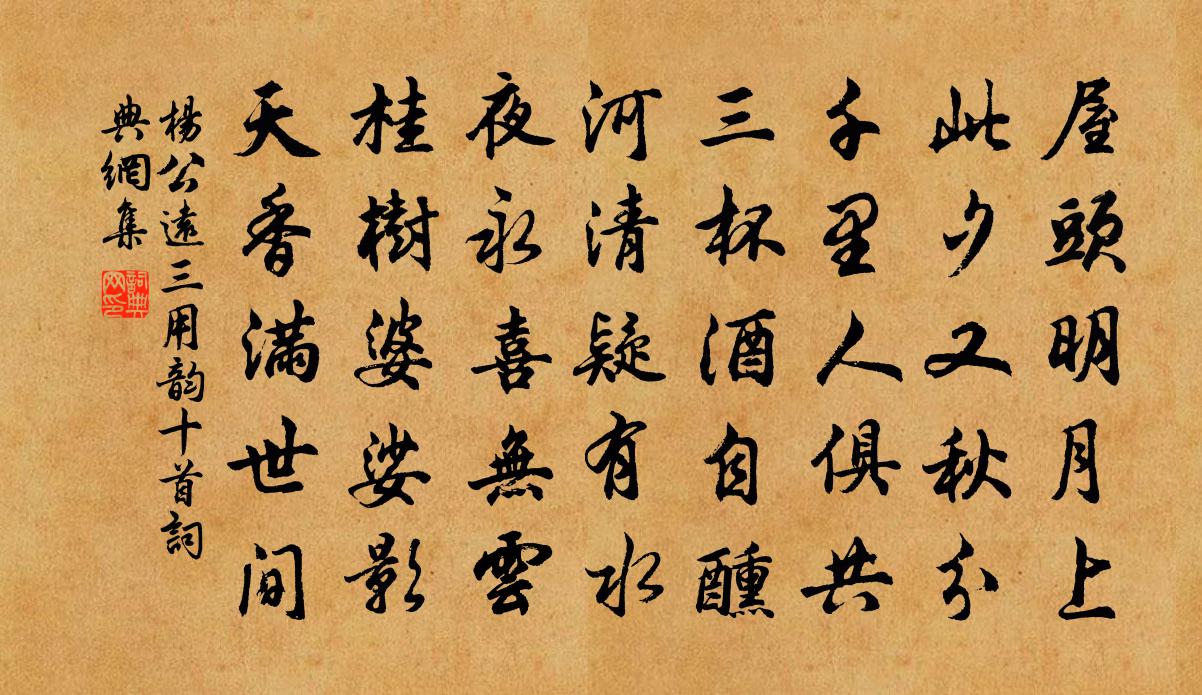 屋頭明月上
此夕又秋分
千里人俱共
三杯酒自醺
河清疑有水
夜永喜無雲
桂樹婆娑影
天香滿世間
楊公遠三用韵十首詞
典網集
詞典
网印